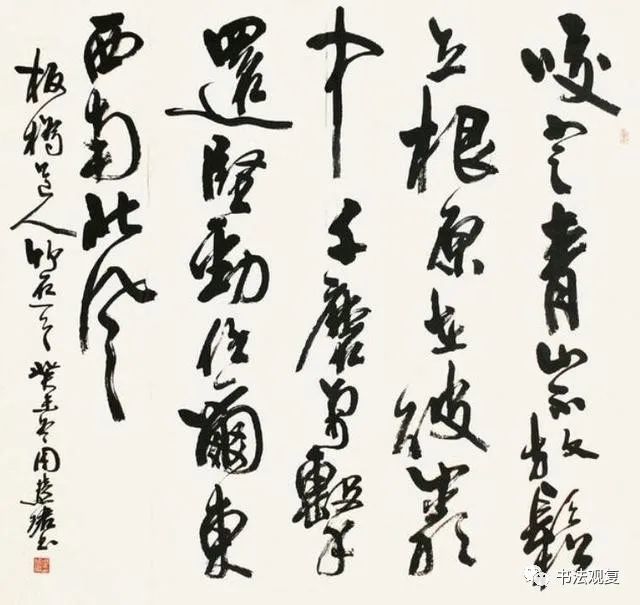 咬定青山不放鬆
立根原在破巖
中千磨萬擊
還堅勁任爾東
西南北風
板橋道人竹石 癸未冬周慧珺書
书法观复